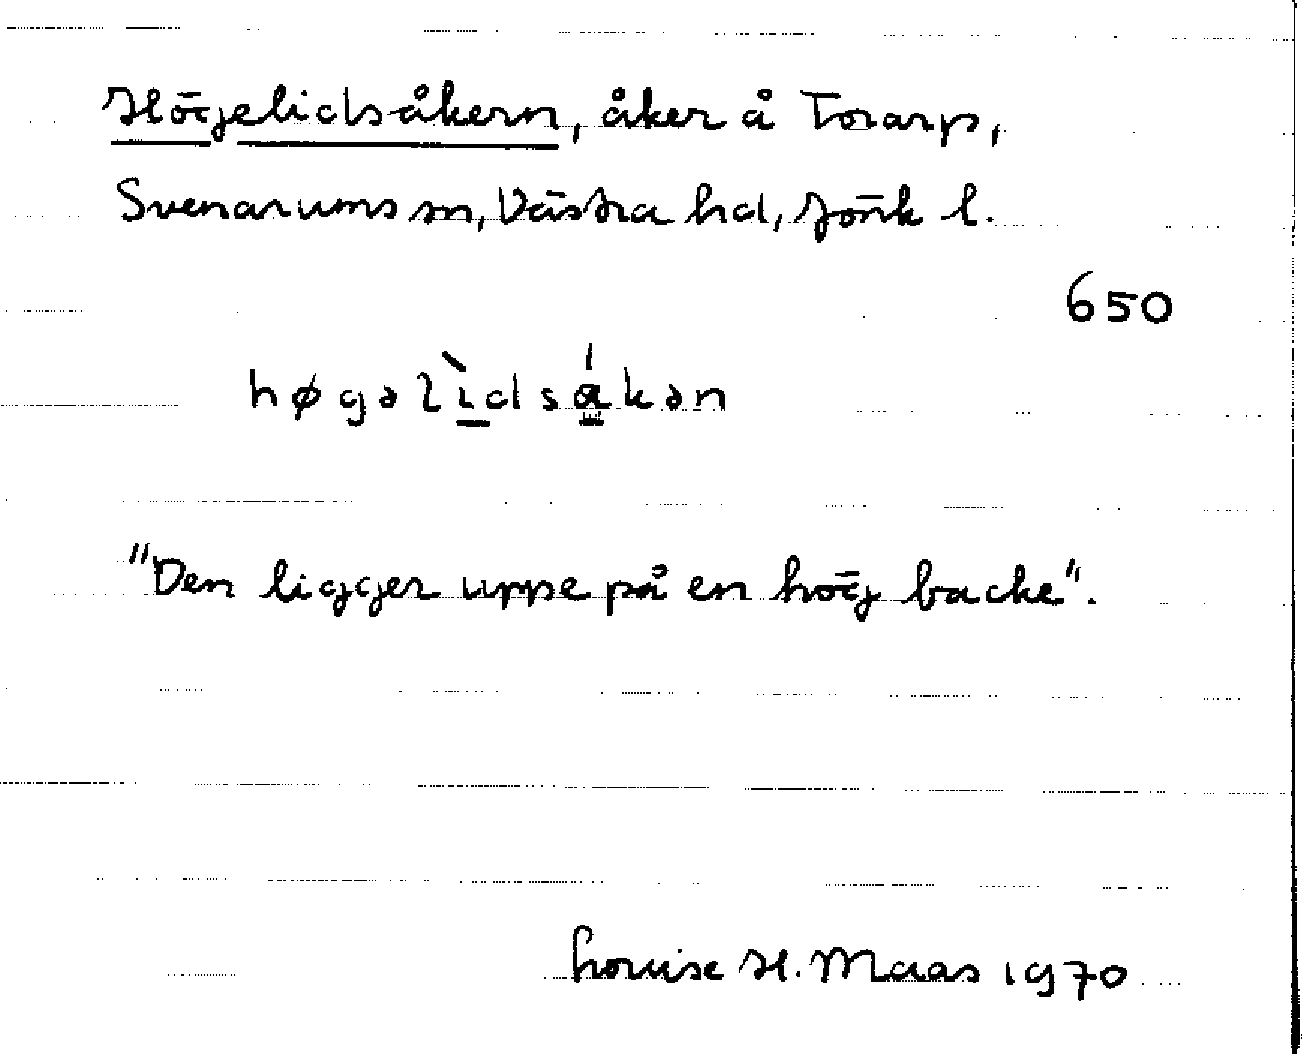 Högelidsåkern, åker å Torarp,
Svenarums sn, Västra hd, Jönk l.
650
høgəlìdsåkən
"Den ligger uppe på en hög backe".
Louise H. Maas 1970